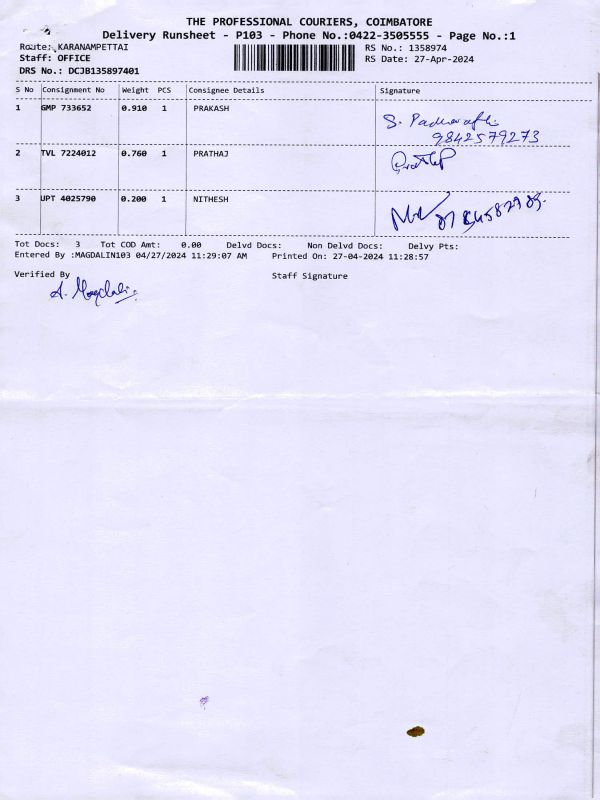 THE PROFESSIONAL COURIERS, COIMBATORE
Delivery Runsheet - P103 - Phone No.:0422-3505555 - Page No.:1
Route: KARANAMPETTAI RS No.: 1358974
Staff: OFFICE RS Date: 27-Apr-2024
DRS No.: DCJB135897401
S No Consignment No Weight PCS Consignee Details Signature
1 GMP 733652 0.910 1 PRAKASH
S. Padmavathi
9842579273
2 TVL 7224012 0.760 1 PRATHAJ
3 UPT 4025790 0.200 1 NITHESH
Tot Docs: 3 Tot COD Amt: 0.00 Delvd Docs: Non Delvd Docs: Delvy Pts:
Entered By :MAGDALIN103 04/27/2024 11:29:07 AM Printed On: 27-04-2024 11:28:57
Verified By Staff Signature
A. Magdalin